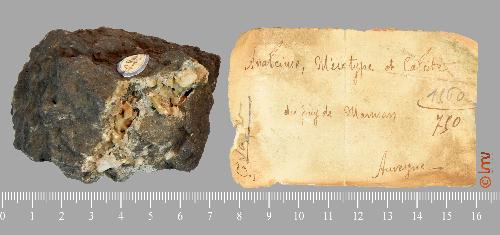 Analcime, Mésotype et Calcite
1160
du puy de Marman
750
Auvergne
0 1 2 3 4 5 6 7 8 9 10 11 12 13 14 15 16